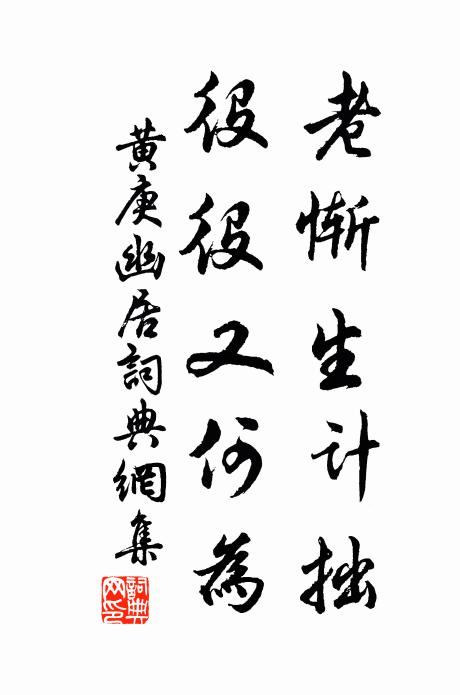 老慚生计拙
役役又何為
黄庚幽居詞典網集
詞典网印